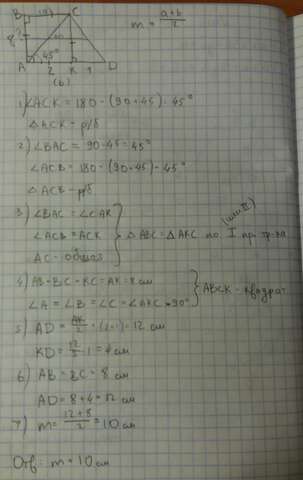 B (a) C
m = a+b/2
8 m
45°
A 2 K 1 D
(b)
1) ∠ACK = 180 - (90+45) = 45°
△ACK - р/б
2) ∠BAC = 90-45 = 45°
∠ACB = 180 - (90+45) = 45°
△ACB - р/б
3) ∠BAC = ∠CAK
∠ACB = ACK
AC - общая
△ABC = △AKC по I пр. тр-ва (или II)
4) AB = BC = KC = AK = 8 см
∠A = ∠B = ∠C = ∠AKC = 90°
ABCK - квадрат
5) AD = AK/2 · (2+1) = 12 см
KD = 12/3 · 1 = 4 см
6) AB = BC = 8 см
AD = 8+4 = 12 см
7) m = 12+8/2 = 10 см
Отв: m = 10 см